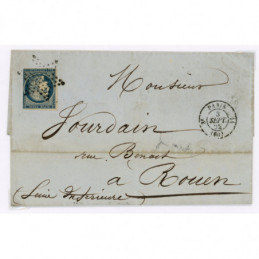 Monsieur
Jourdain
rue Benoit
à Rouen
(Seine Inférieure)
PARIS
SEPT.
(60)